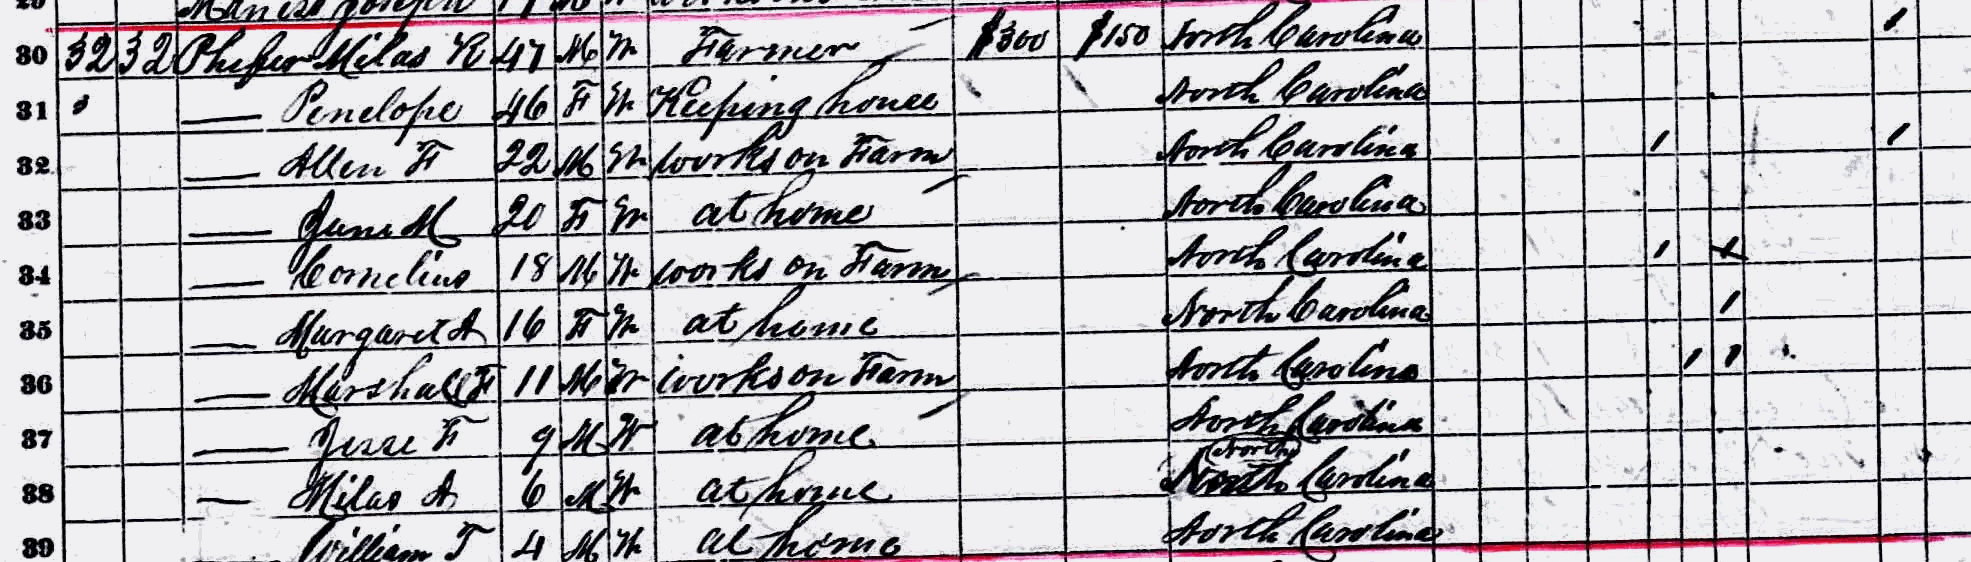 30 32 32 Phifer Milas R 47 M W Farmer $300 $150 North Carolina 1
31 " — Penelope 46 F W Keeping house North Carolina
32 — Allen F 22 M W works on Farm North Carolina 1 1
33 — Jane M 20 F W at home North Carolina
34 — Cornelius 18 M W works on Farm North Carolina 1 1
35 — Margaret A 16 F W at home North Carolina 1
36 — Marshall F 11 M W works on Farm North Carolina 1 1
37 — Jesse F 9 M W at home North Carolina
North
38 — Milas A 6 M W at home North Carolina
39 — William T 4 M W at home North Carolina